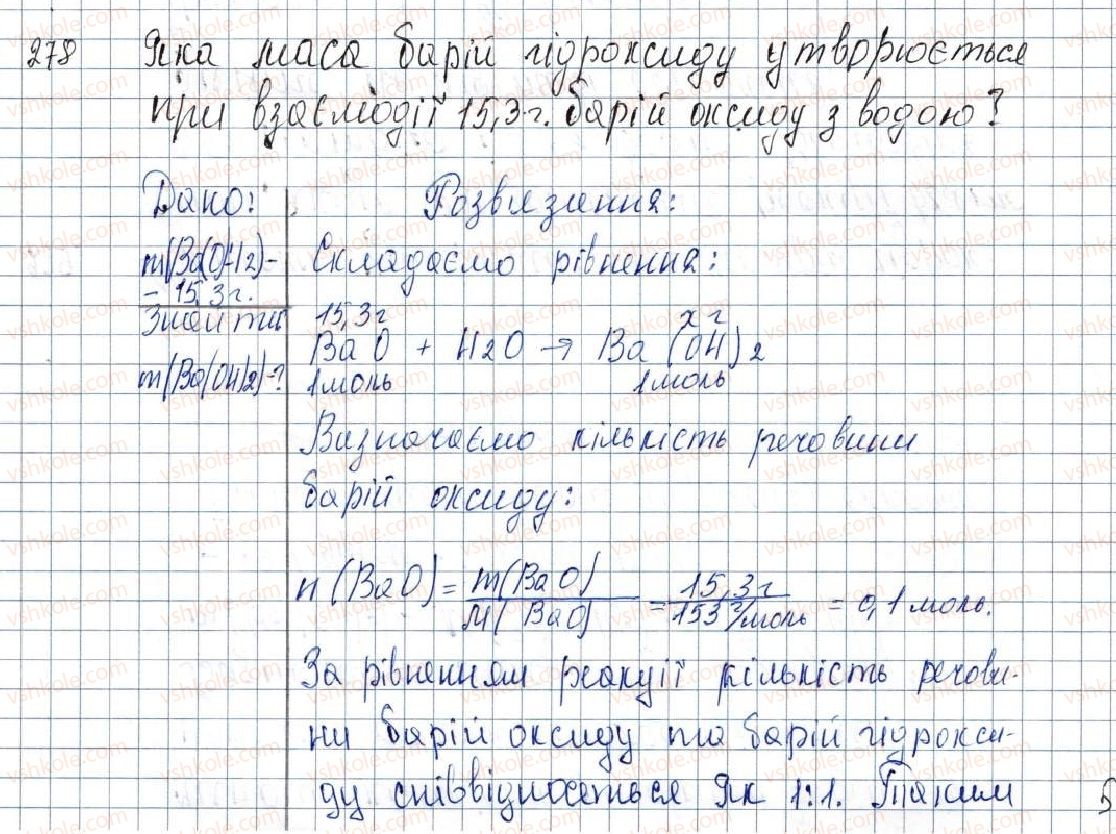 278 Яка маса барій гідроксиду утворюється
при взаємодії 15,3 г. барій оксиду з водою?
Дано:
m(Ba(OH)2)-
- 15,3 г.
Знайти
m(Ba(OH)2)-?
Розв'язання:
Складаємо рівнення:
15,3 г x г
BaO + H2O → Ba(OH)2
1 моль 1 моль
Визначаємо кількість речовини
барій оксиду:
n(BaO) = m(BaO) / M(BaO) = 15,3 г / 153 г/моль = 0,1 моль.
За рівненням реакції кількість речови-
ни барій оксиду та барій гідрокси-
ду співвідноситься як 1:1. Таким
vshkole.com